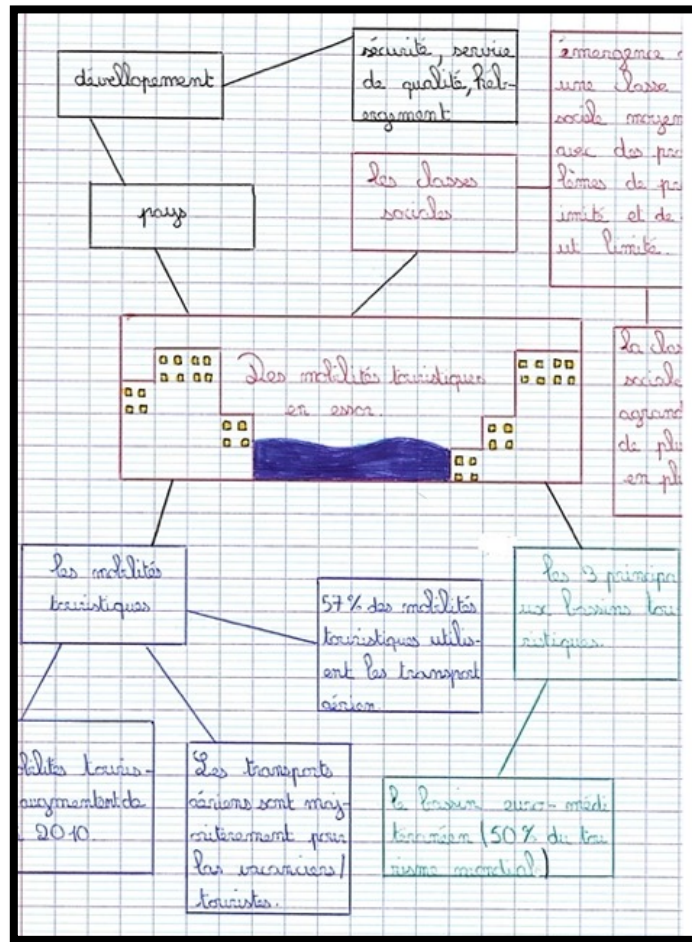 dévellopement
sécurité, service
de qualité, héb-
ergement
émergence
une classe
sociale moyen
avec des pro
lèmes de
imité et de
ut limité.
pays
les classes
sociales
Des mobilités touristiques
en essor.
la clas
sociale
agrand
de plu
en plu
les mobilités
touristiques
57% des mobilités
touristiques utilis-
ent les transport
aérien.
les 3 principa
ux bassins tou
ristiques.
bilités touris-
augmentent de
2010.
Les transports
aériens sont maj-
oritèrement pour
les vacanciers/
touristes.
le bassin euro-médi
terranéen (50% du tou
risme mondial)